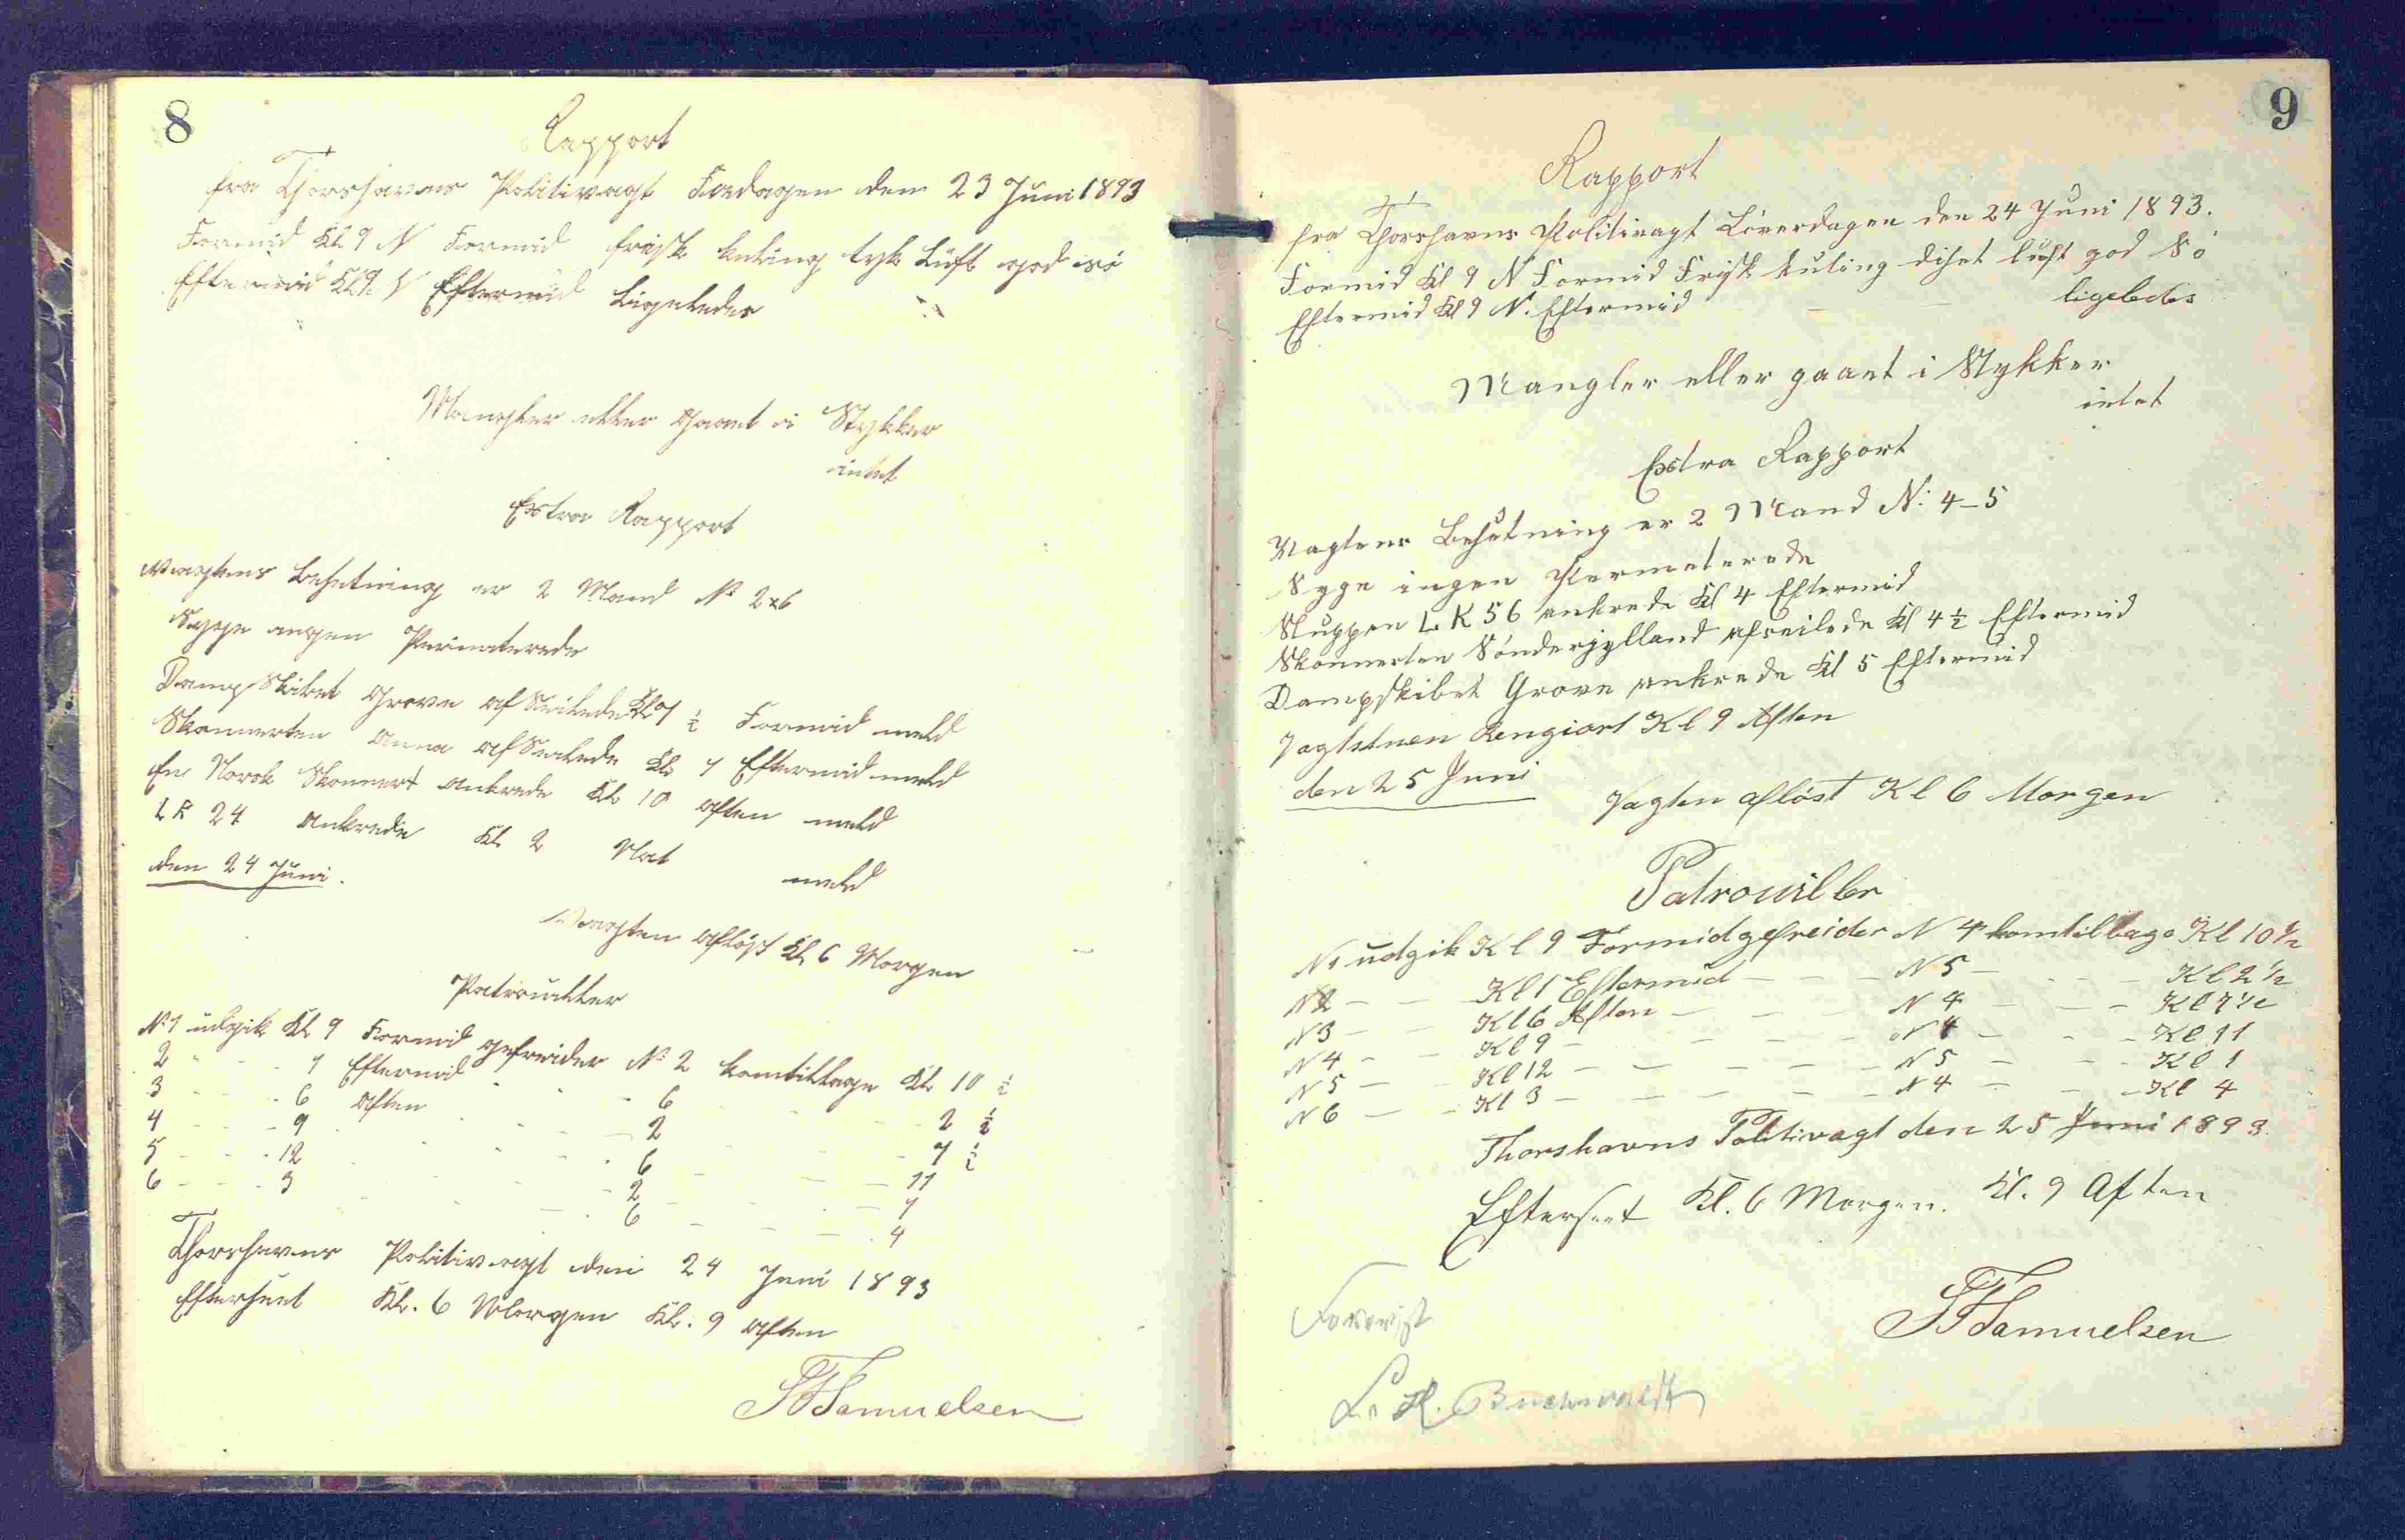 8
Rapport
fra Thorshavns Politivagt Fredagen den 23 Juni 1893
Formid Kl 9 N Formid frisk kuling tyk Luft god sö
Eftermid Kl 9 N Eftermid Ligeledes
Mangler eller gaaet i Stykker
intet
Extra Rapport
Vagtens Besetning er 2 Mand N 2 x 6
Syge ingen Permeterede
Damp Skibet Grove af Seilede Kl 7 1/2 Formid meld
Skonnerten Anna af Seilede Kl 7 Eftermid meld
En Norsk Skonnert ankrede Kl 10 Aften meld
LK 24 ankrede Kl 2 Nat
meld
den 24 Juni.
Vagten aflöst Kl 6 Morgen
Patrouiller
N: 1 udgik Kl 9 Formid gefreider N: 2 komtilbage Kl 10 1/2
2 - - 1 Eftermid - - 6 - - 2 1/2
3 - - 6 Aften - - 2 - - 7 1/2
4 - - 9 - - 6 - - 11
5 - - 12 - - 2 - - 1
6 - - 3 - - 6 - - 4
Thorshavns Politivagt den 24 Juni 1893
Efterseet Kl. 6 Morgen Kl. 9 Aften
Samuelsen
9
Rapport
fra Thorshavns Politivagt Löverdagen den 24 Juni 1893.
Formid Kl 9 N Formid Frisk kuling diset luft god Sö
Eftermid Kl 9 N. Eftermid - - ligeledes
Mangler eller gaaet i Stykker
intet
Extra Rapport
Vagtens Besetning er 2 Mand N: 4-5
Syge ingen Permeterede
Sluppen LK 56 ankrede Kl 4 Eftermid
Skonnerten Sönderjylland afseilede Kl 4 1/2 Eftermid
Dampskibet Grove ankrede Kl 5 Eftermid
Vagtstuen Rengiort Kl 9 Aften
den 25 Juni
Vagten aflöst Kl 6 Morgen
Patrouiller
N1 udgik Kl 9 Formid gefreider N 4 komtilbage Kl 10 1/2
N2 - - Kl 1 Eftermid - - N 5 - - Kl 2 1/2
N3 - - Kl 6 Aften - - N 4 - - Kl 7 1/2
N4 - - Kl 9 - - N 4 - - Kl 11
N5 - - Kl 12 - - N 5 - - Kl 1
N6 - - Kl 3 - - N 4 - - Kl 4
Thorshavns Politivagt den 25 Juni 1893.
Efterseet Kl. 6 Morgen. Kl. 9 Aften
Samuelsen
Forevist
Buchwaldt